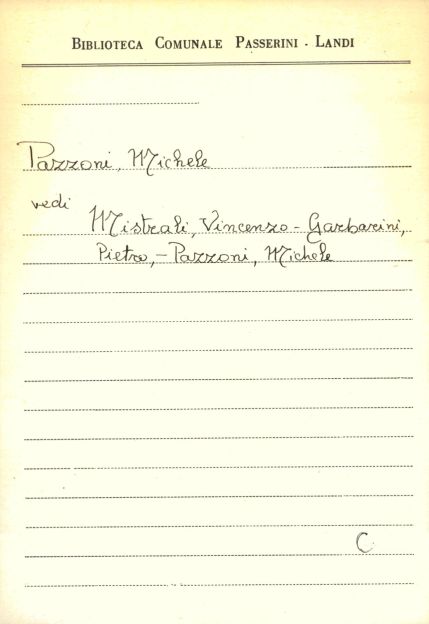 BIBLIOTECA COMUNALE PASSERINI - LANDI
Pazzoni, Michele
vedi
Mistrali, Vincenzo - Garbarini,
Pietro, - Pazzoni, Michele
C